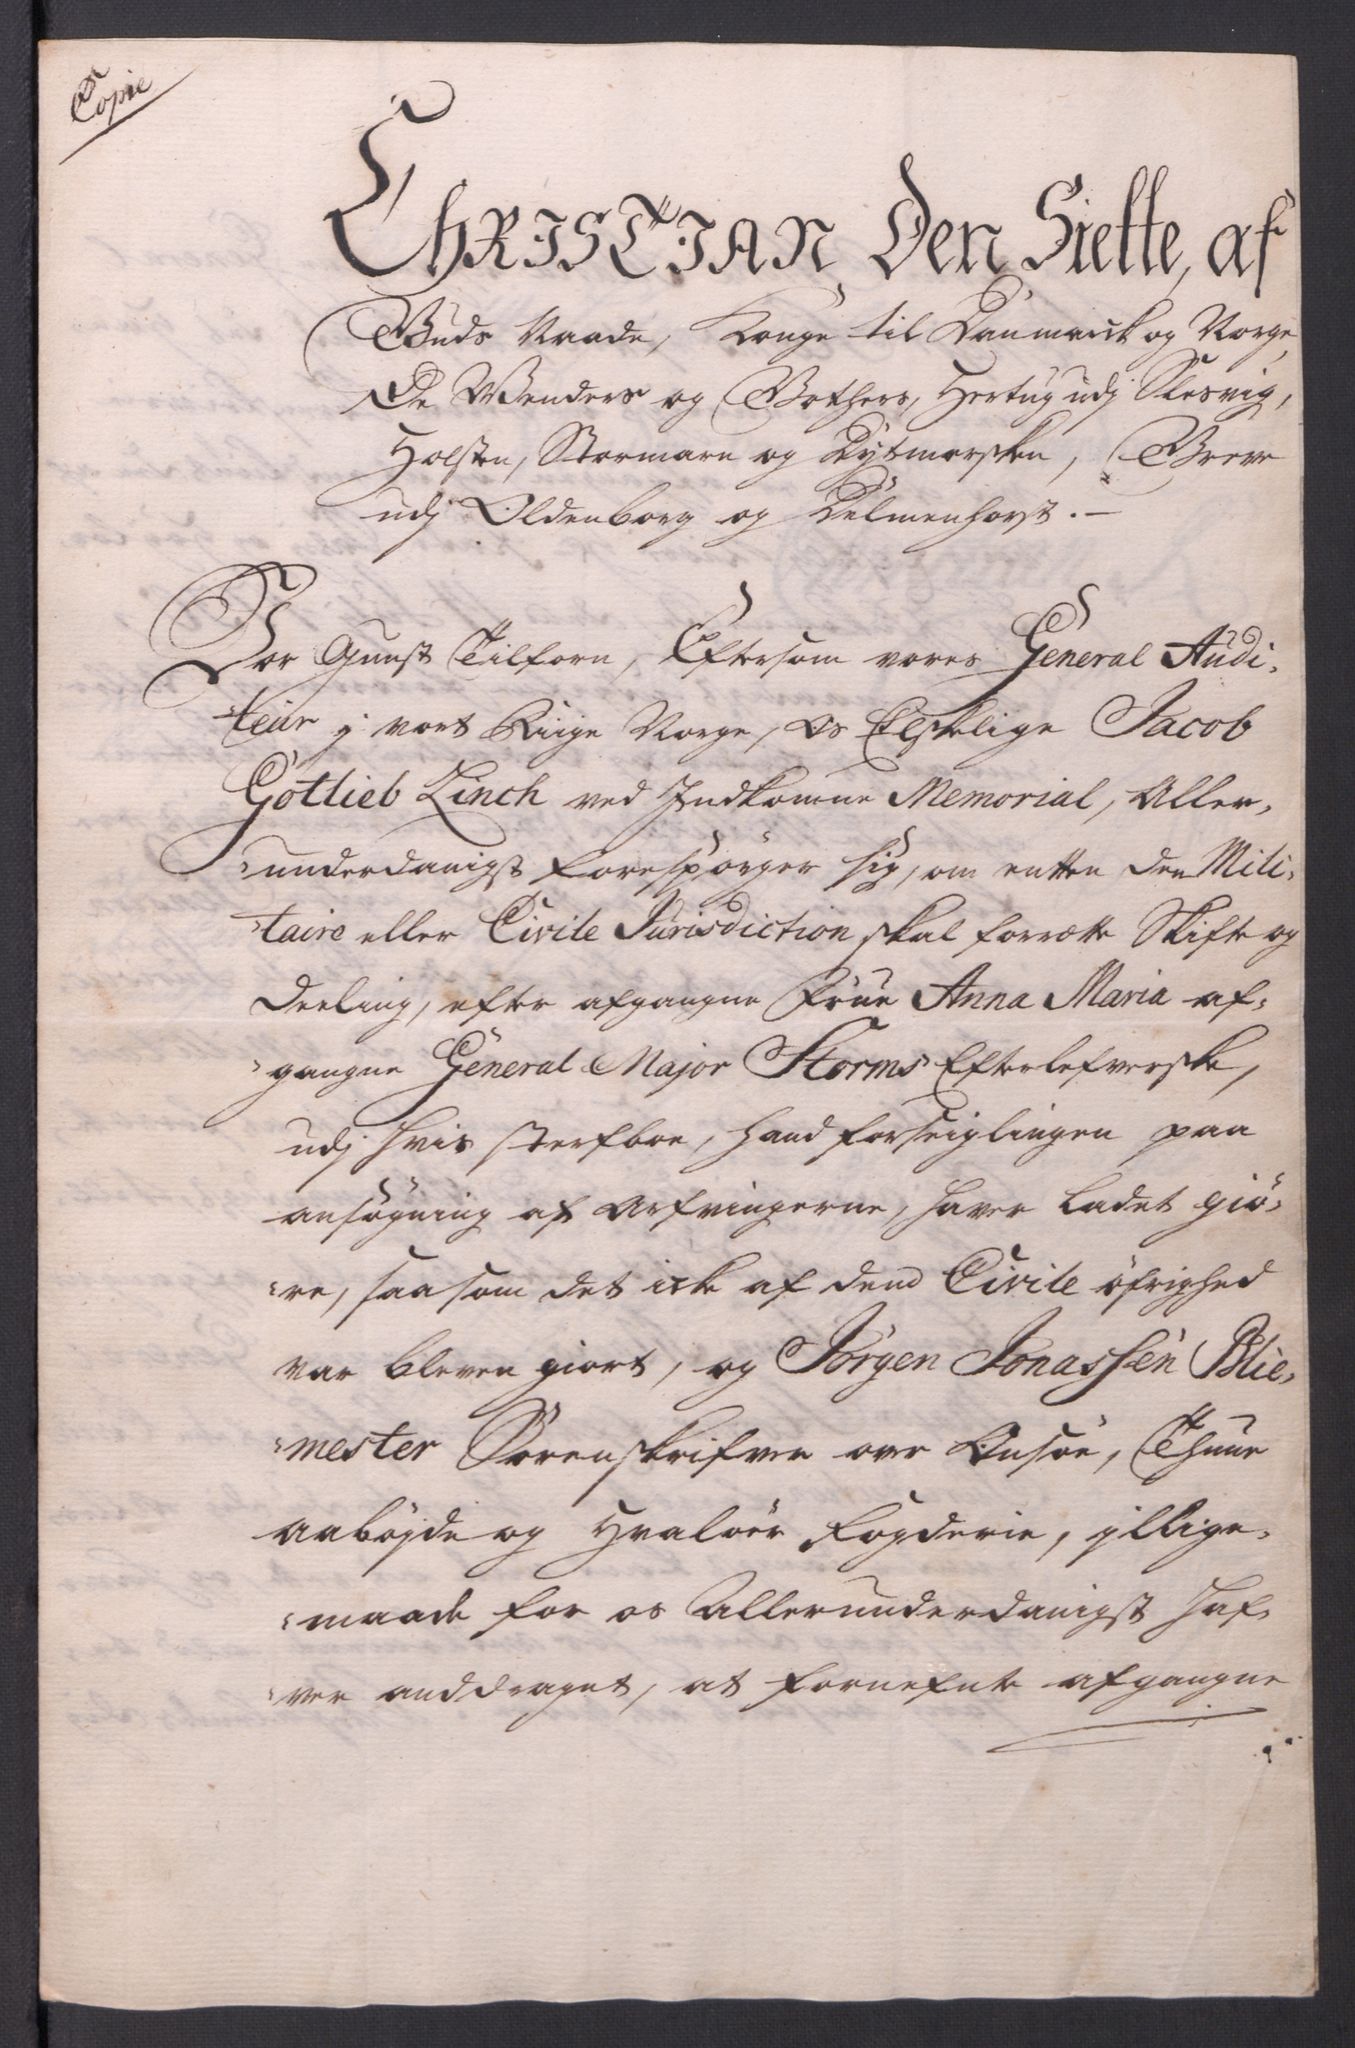 Copie
Christian Den Siette, af
Guds Naade, Konge til Danmarck og Norge,
De Wenders og Gothers, Hertug udj Slesvig,
Holsten, Stormarn og Dytmersken, Greve
udj Oldenborg og Delmenhorst. —
Vor Gunst Tilforn, Eftersom vores General Audi,
„teur j vort Riige Norge, Os Elskelige Jacob
Gotlieb Linch ved Indkomne Memorial, Aller,
„underdanigst forespørger sig, om enten den Mili,
„taire eller Civile Jurisdiction skal forrette Skifte og
Deeling, efter afgangne Frue Anna Maria af,
„gangne General Major Storms Efterlefverske,
udj hvis Sterfboe, hand forseiglingen paa
ansøgning af Arfvingerne, haver ladet giö,
„re, saasom det icke af dend Civile öfrighed
var bleven giort, og Jörgen Jonassen Blie,
„mester Sorenskrifver over Onsöe, Thune
Aabøjde og Hvalöer Fogderie, jllige,
„maade for os Allerunderdanigst haf,
„ver anddraget, at fornefnte afgangne